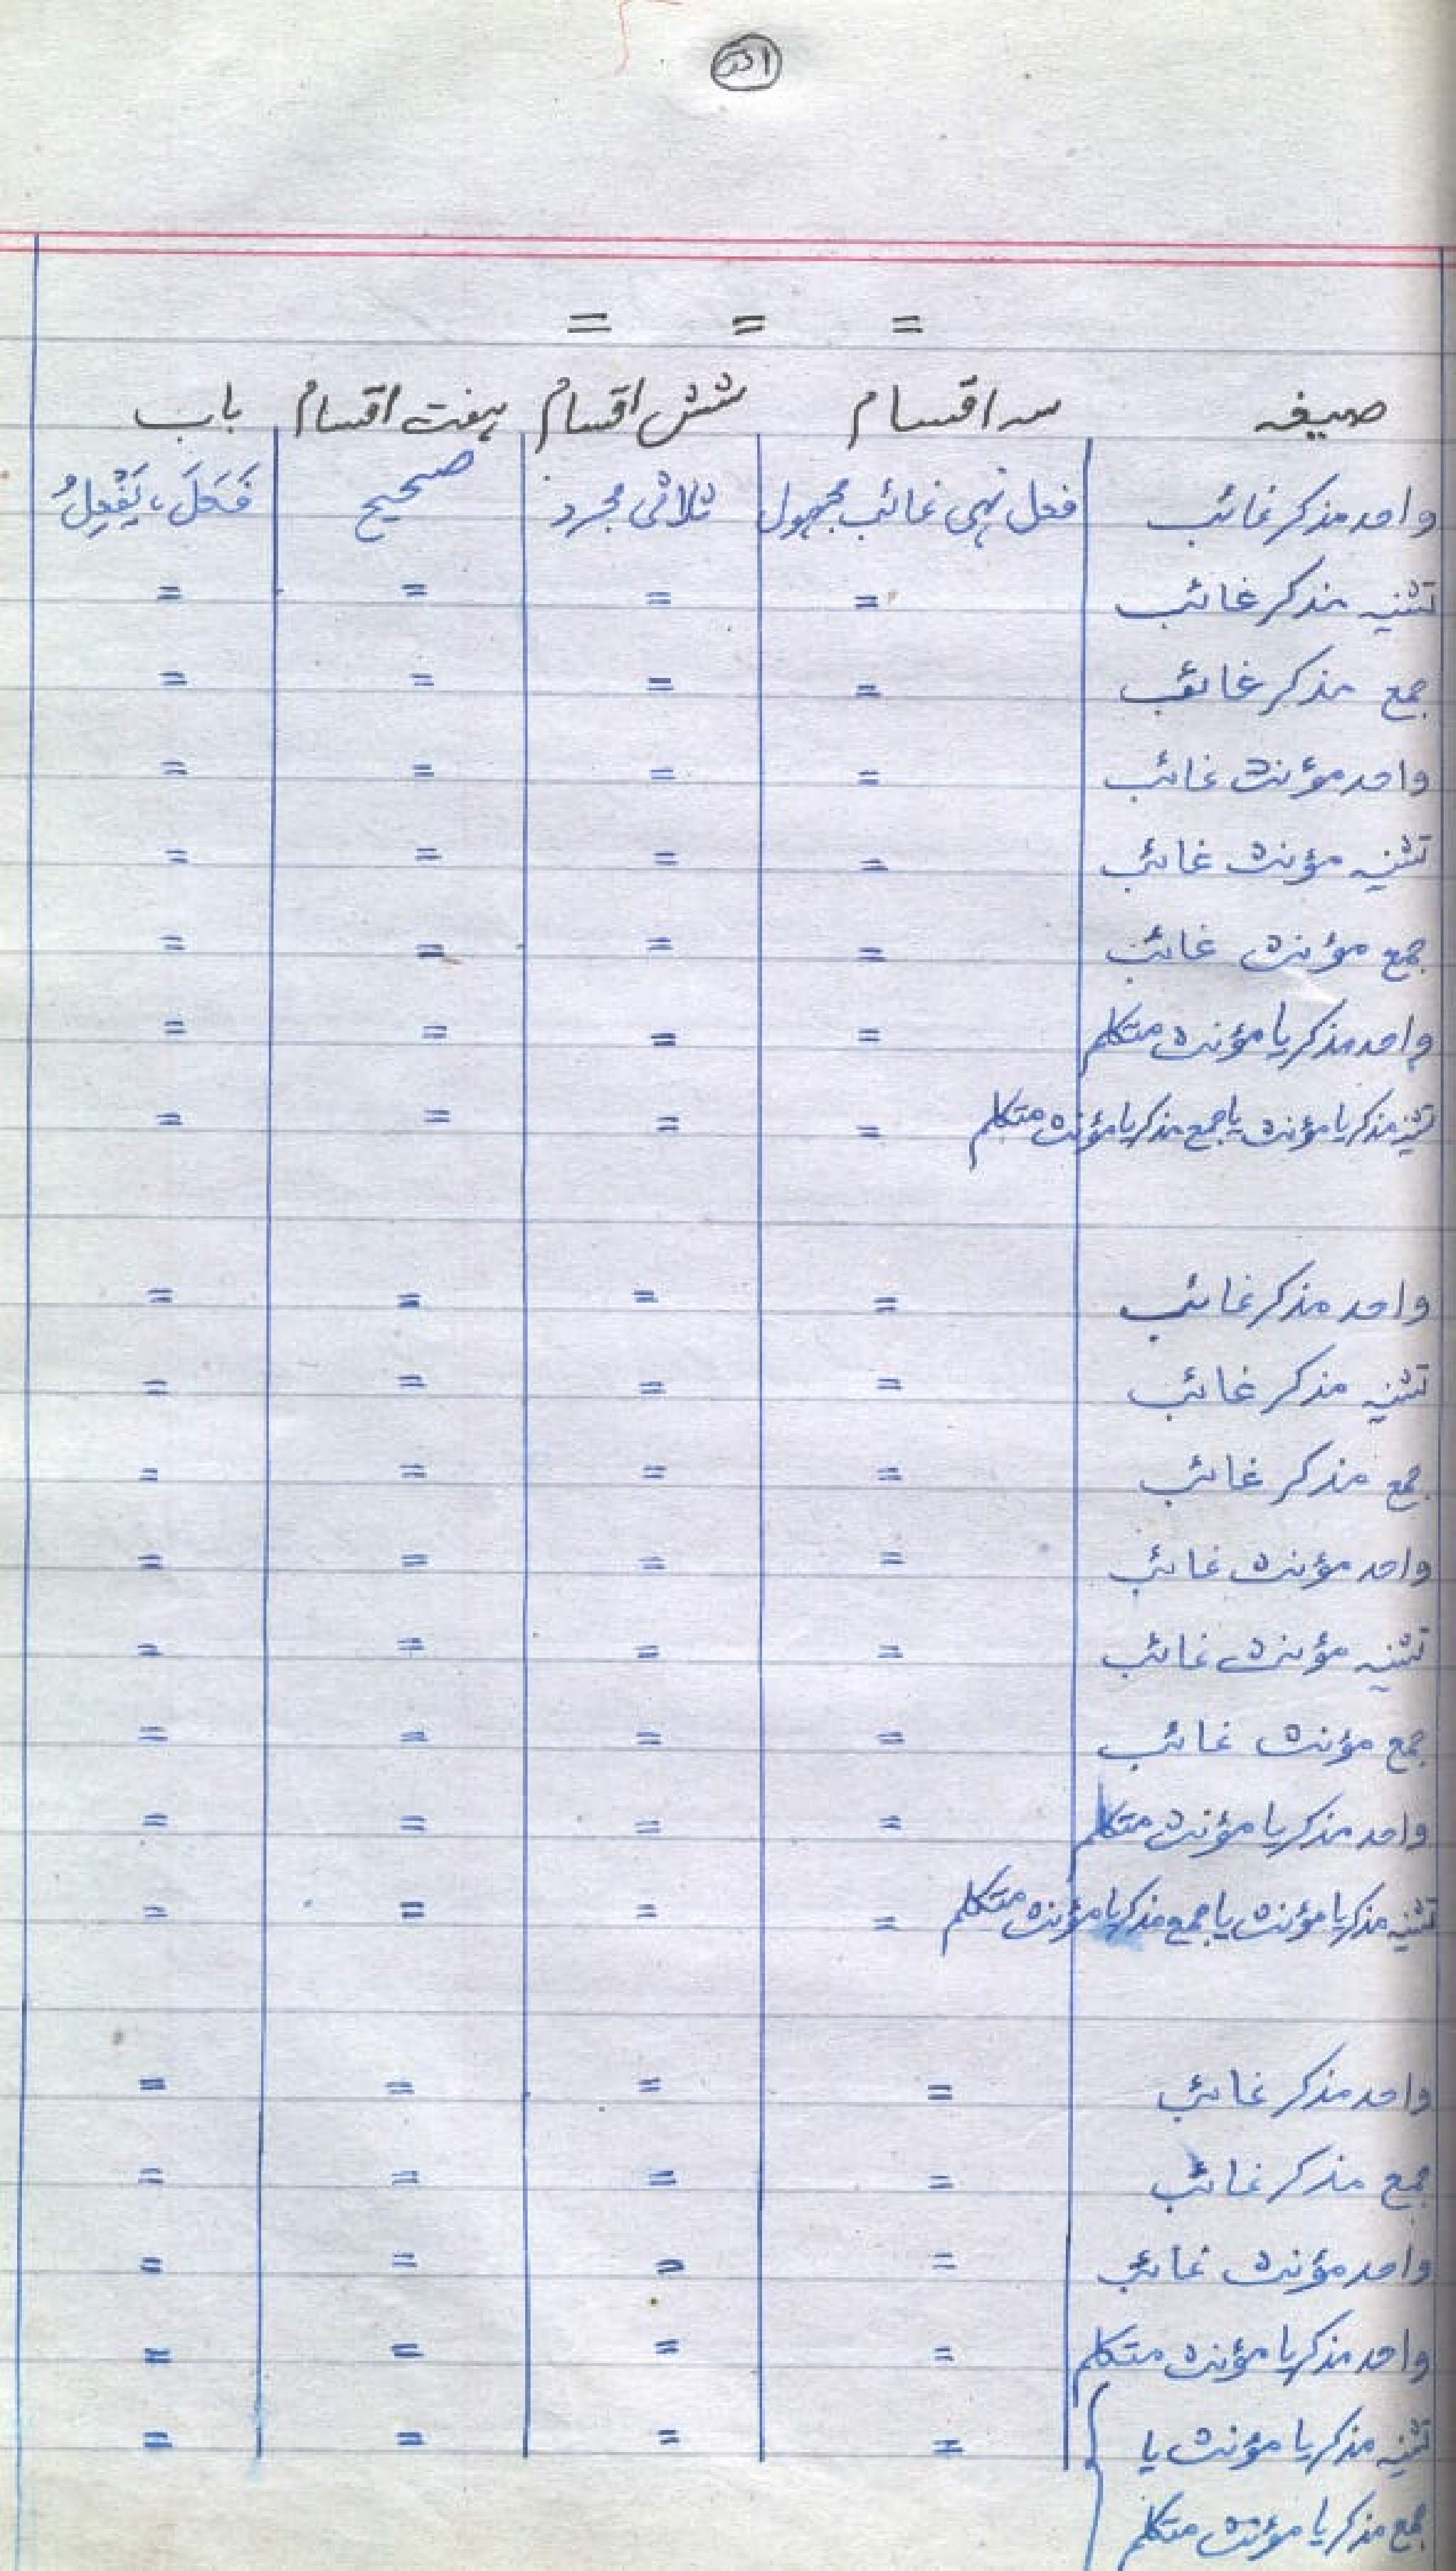 = = =
صیغہ سہ اقسام شش اقسام ہفت اقسام باب
واحد مذکر غائب فعل نہی غائب مجہول ثلاثی مجرد صحیح فَعَلَ، یَفْعِلُ
تثنیہ مذکر غائب = = = =
جمع مذکر غائب = = = =
واحد مؤنث غائب = = = =
تثنیہ مؤنث غائب = = = =
جمع مؤنث غائب = = = =
واحد مذکر یا مؤنث متکلم = = = =
تثنیہ مذکر یا مؤنث یا جمع مذکر یا مؤنث متکلم = = = =
واحد مذکر غائب = = = =
تثنیہ مذکر غائب = = = =
جمع مذکر غائب = = = =
واحد مؤنث غائب = = = =
تثنیہ مؤنث غائب = = = =
جمع مؤنث غائب = = = =
واحد مذکر یا مؤنث متکلم = = = =
تثنیہ مذکر یا مؤنث یا جمع مذکر یا مؤنث متکلم = = = =
واحد مذکر غائب = = = =
جمع مذکر غائب = = = =
واحد مؤنث غائب = = = =
واحد مذکر یا مؤنث متکلم = = = =
تثنیہ مذکر یا مؤنث یا = = = =
جمع مذکر یا مؤنث متکلم